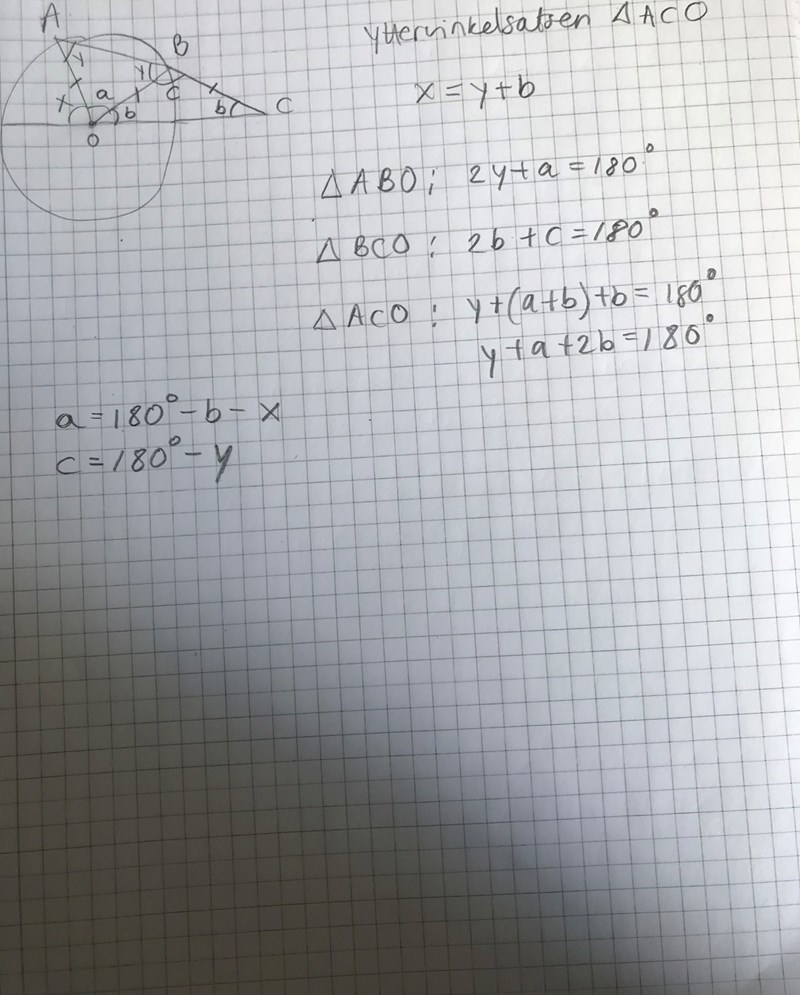 A
B
y
y
x
a
c
b
b
C
O
Yttervinkelsatsen △ACO
x = y+b
△ABO; 2y+a = 180°
△BCO: 2b + c = 180°
△ACO: y+(a+b)+b = 180°
y+a+2b = 180°
a = 180° - b - x
c = 180° - y